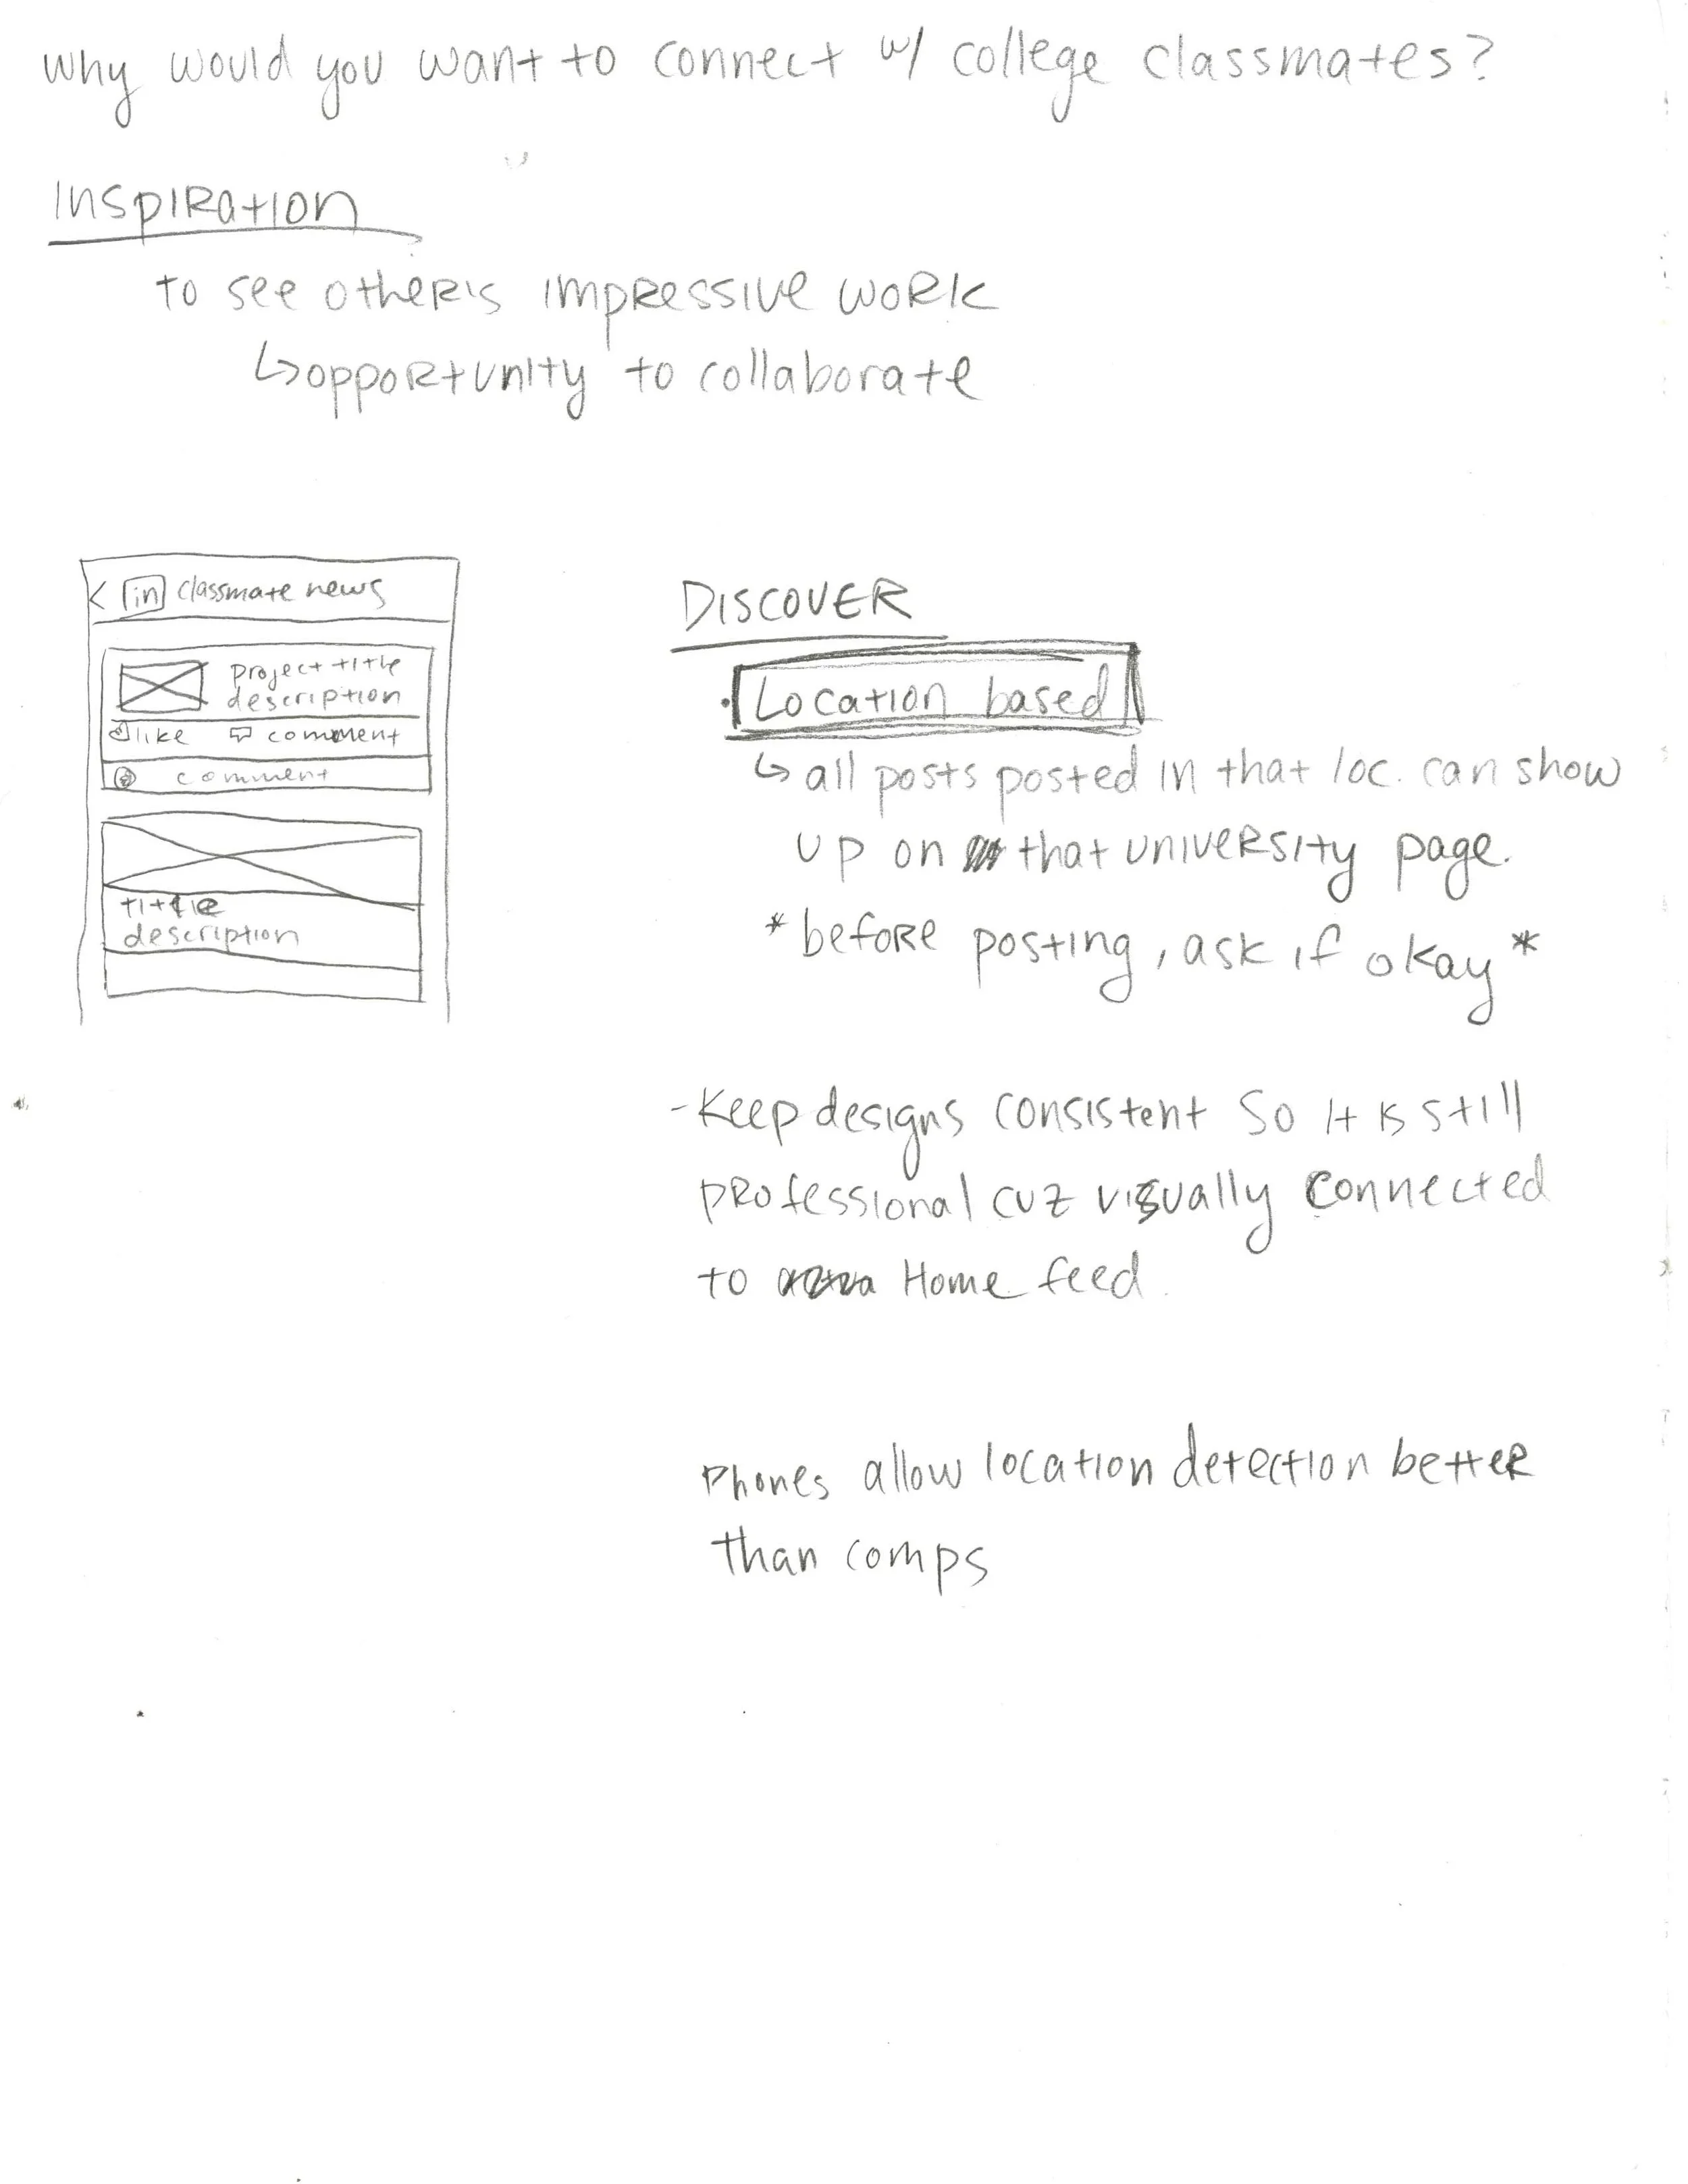 why would you want to connect w/ college classmates?
INSPIRATION
to see other's impressive work
↳opportunity to collaborate
< in classmate news
project title
description
like comment
comment
title
description
DISCOVER
• Location based
↳ all posts posted in that loc. can show
up on that university page.
*before posting, ask if okay*
- Keep designs consistent so it is still
professional cuz visually connected
to Home feed.
Phones allow location detection better
than comps